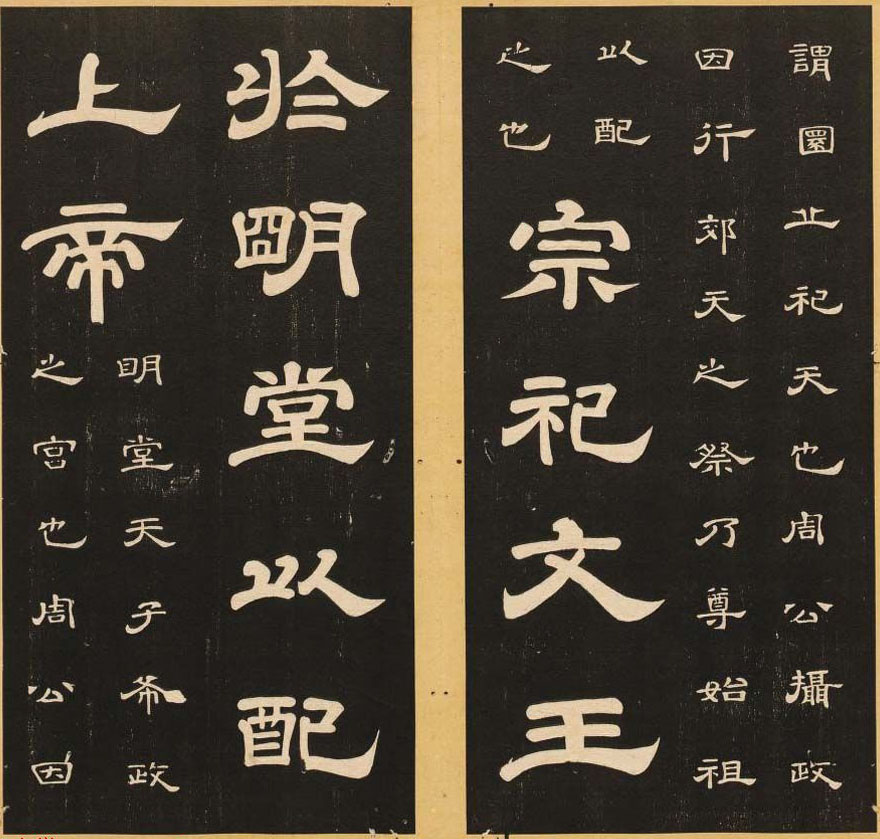 謂圜丘祀天也周公攝政
因行郊天之祭乃尊始祖
以配
之也
宗祀文王
於朙堂以配
上帝
眀堂天子布政
之宮也周公因